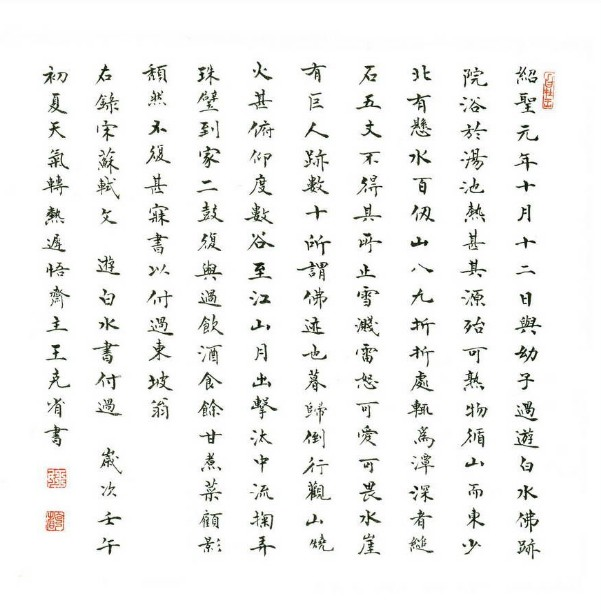 紹聖元年十月十二日與幼子過遊白水佛跡
院浴於湯池熱甚其源殆可熟物循山而東少
北有懸水百仞山八九折折處輒爲潭深者縋
石五丈不得其所止雪濺雷怒可愛可畏水崖
有巨人跡數十所謂佛迹也暮歸倒行觀山燒
火甚俯仰度數谷至江山月出擊汰中流掬弄
珠璧到家二鼓復與過飲酒食餘甘煮菜顧影
頹然不復甚寐書以付過東坡翁
右錄宋蘇軾文 遊白水書付過 歲次壬午
初夏天氣轉熱遲悟齋主王克省書